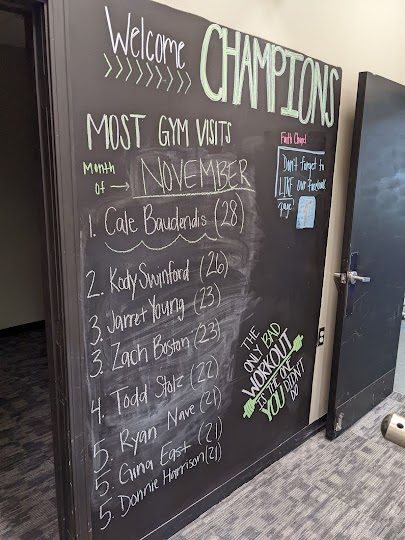 Welcome
CHAMPIONS
>>>>>>>>
MOST GYM VISITS
Month
of → NOVEMBER
1. Cale Baudendis (28)
2. Kody Swinford (26)
3. Jarret Young (23)
3. Zach Boston (23)
4. Todd Stolz (22)
5. Ryan Nave (21)
5. Gina East (21)
5. Donnie Harrison (21)
Faith Chapel
Don't forget to
LIKE our facebook
page
THE
ONLY BAD
WORKOUT
IS THE ONE
YOU DIDN'T
DO